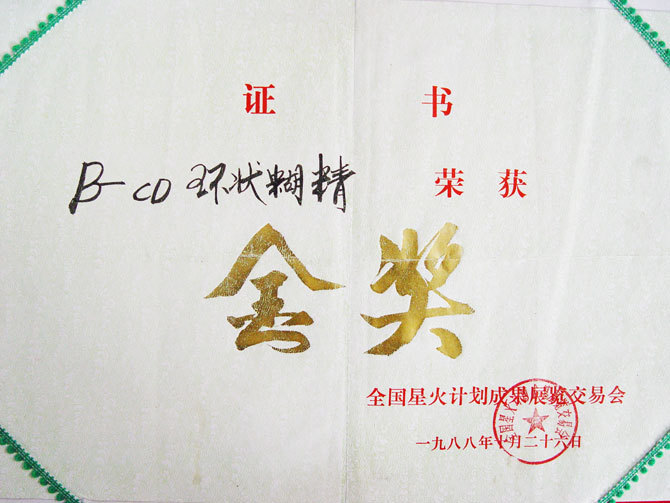 证书
B-CD环状糊精 荣获
金奖
全国星火计划成果展览交易会
一九八八年十月二十六日